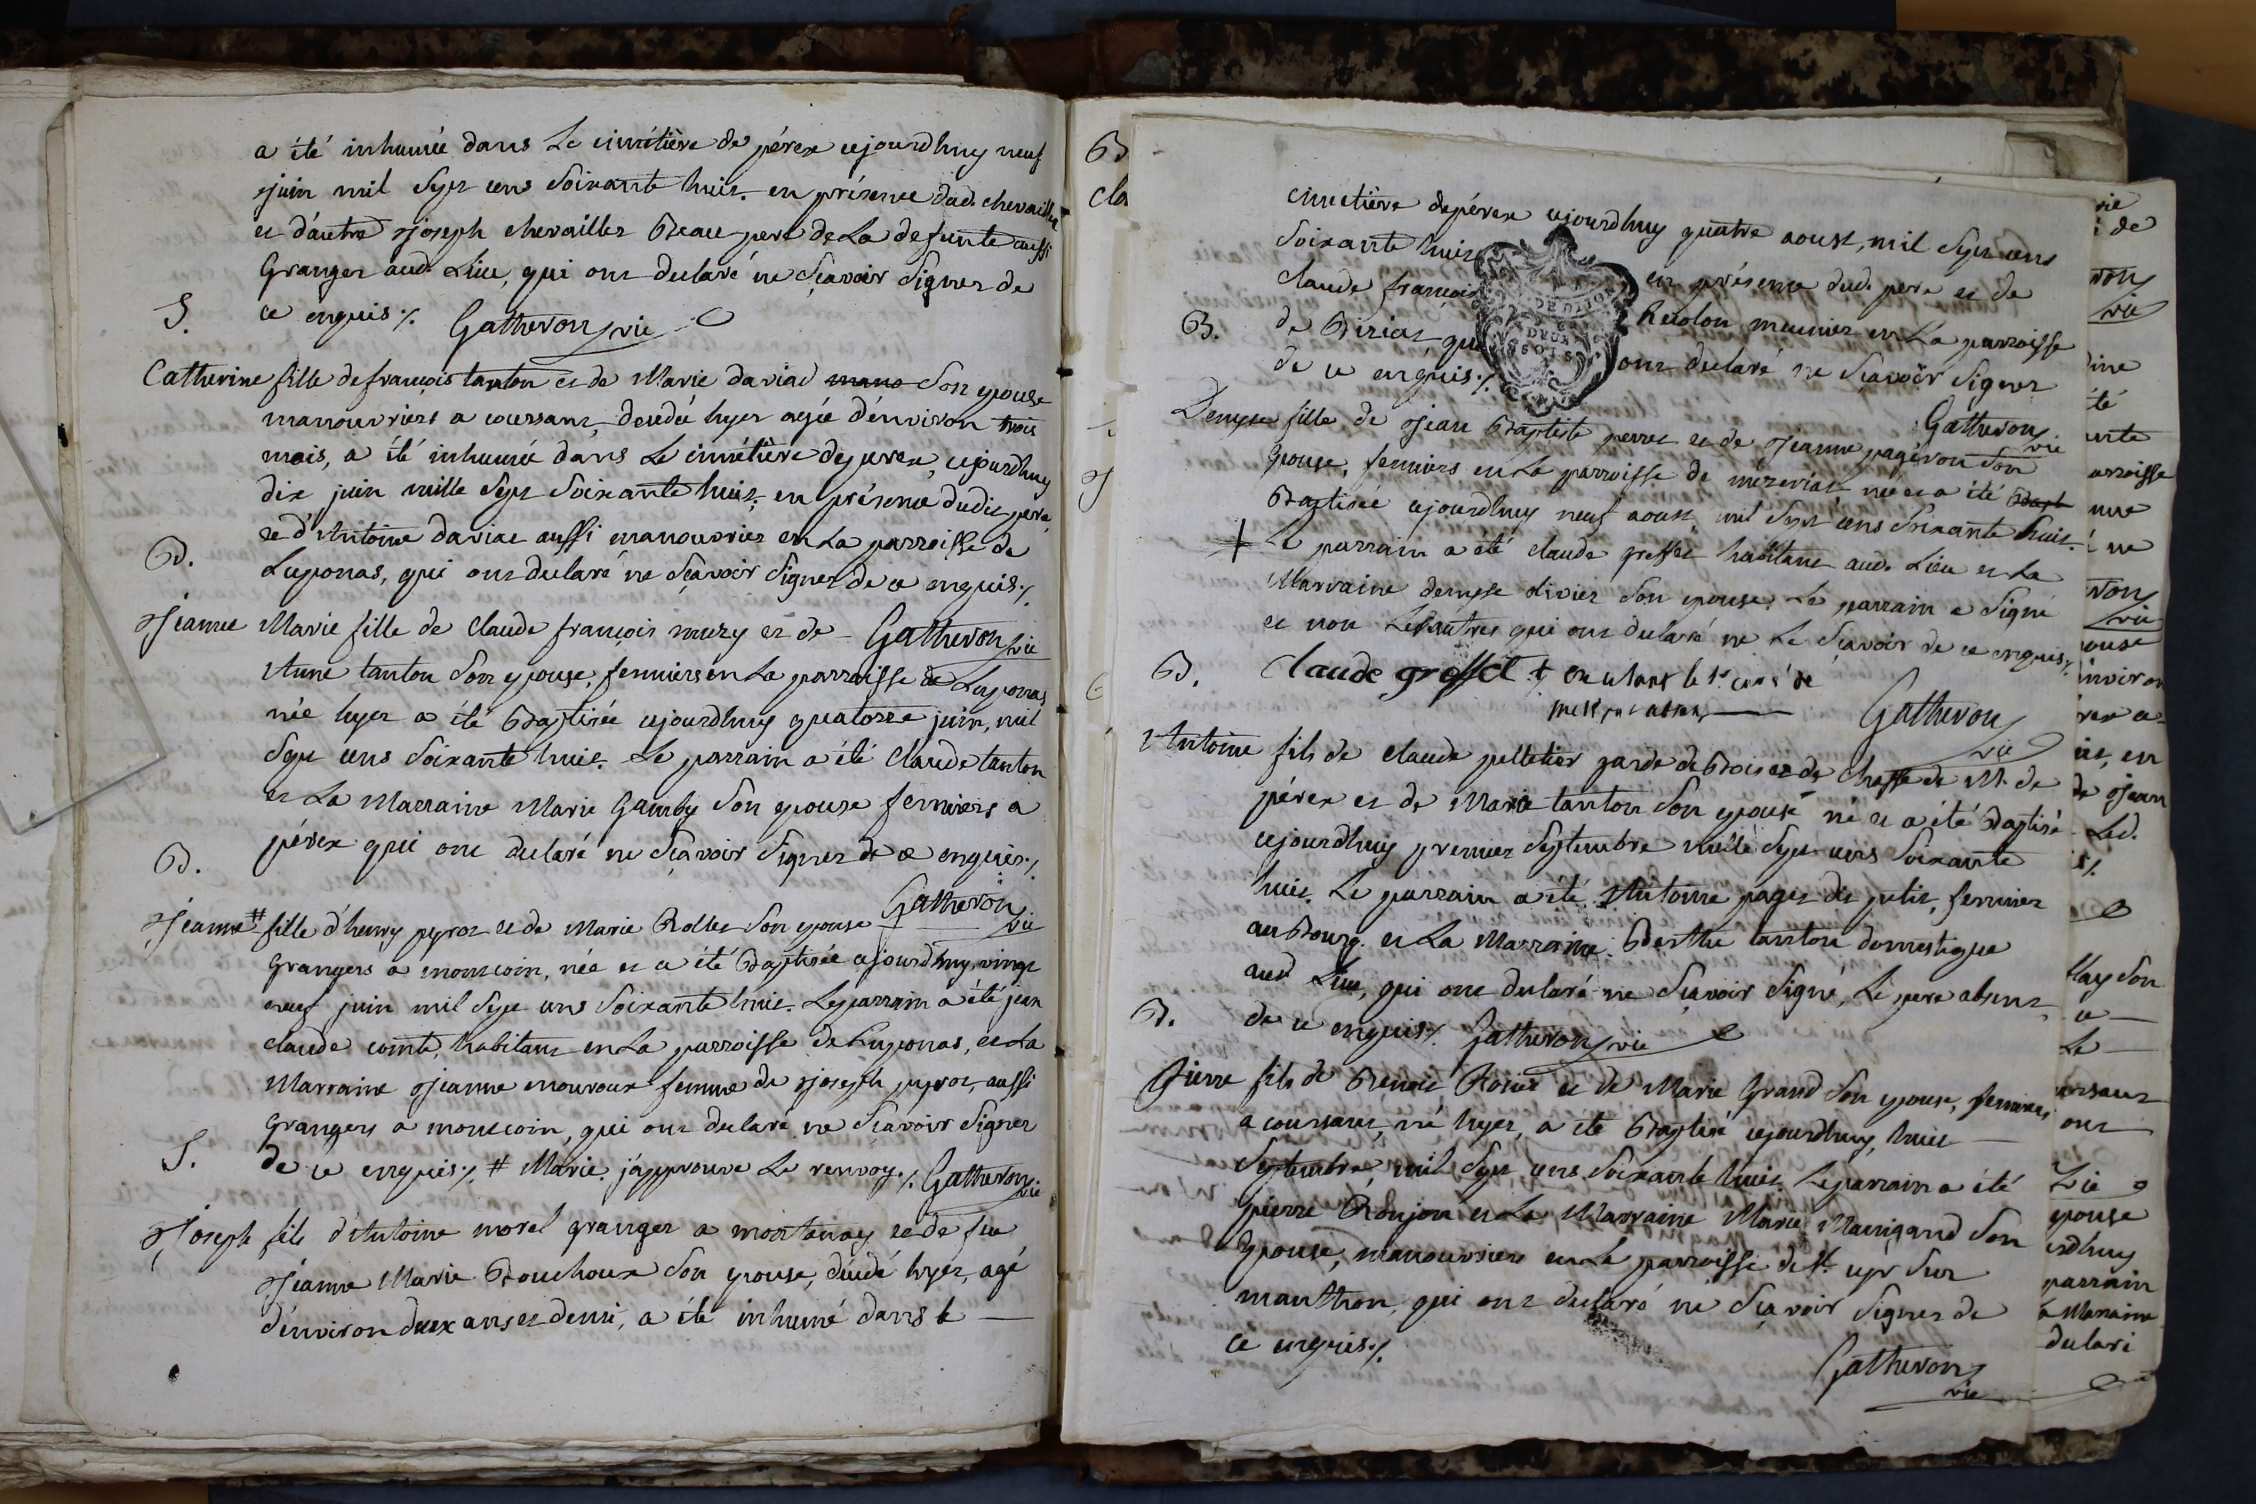 a été inhumée dans Le cimétière de pérex cejourdhuy neuf
juin mil Sept cens Soixante huit. en présence dud. chevailler
et d'autre Joseph chevailler Beau pere de La defunte aussi
Granger aud. Lieu, qui ont declaré ne Sçavoir Signer de
ce enquis ⁒ Gatheron vic
S.
Catherine fille de françois tanton et de Marie daviad mano Son epouse
manouvriers a coursant, decedée hyer agée d'environ trois
mois, a été inhumée dans Le cimétière de perex, cejourdhuy
dix juin mille Sept Soixante huit, en présence dudit pere
et d'Antoine daviac aussi manouvrier en La parroisse de
Luponas, qui ont declaré ne Sçavoir Signer de ce enquis ⁒
B.
Jeanne Marie fille de Claude françois muzy et de Gatheron vic
Anne tanton Son epouse, fermiers en La parroisse de Luponas
née hyer a été Baptisée cejourdhuy quatorze juin, mil
Sept cens Soixante huit. Le parrain a été Claude tanton
et La Marraine Marie Gamby Son epouse fermiers a
pérex qui ont declaré ne Sçavoir Signer de ce enquis ⁒
B. Gatheron vic
Jeanne # fille d'henry peyrot et de Marie Rollet Son epouse
Grangers a montcoin, née et a été Baptisée cejourdhuy vingt
neuf juin mil Sept cens Soixante huit. Le parrain a été jean
claude comte, habitant en La parroisse de Luponas, et La
Marraine Jeanne mouroux femme de Joseph peyrot, aussi
Grangers a montcoin, qui ont declaré ne Sçavoir Signer
de ce enquis ⁒ # Marie. j'approuve Le renvoy ⁒ Gatheron vic
S.
Joseph fils d'Antoine morel granger a montanay et de feu
Jeanne Marie Bouchoux Son epouse, decedé hyer, agé
d'environ deux ans et demi, a été inhumé dans le
B
cla
cimetière de pérex cejourdhuy quatre aoust, mil Sept cens
Soixante huit en présence dud. pere et de
claude françois Revolon meunier en La parroisse
de Biziat, qui ont declaré ne Sçavoir Signer
de ce enquis ⁒
DE DIJON
DEUX
SOLS
Gatheron vic
B.
Denyse fille de Jean Baptiste perret et de Jeanne pagéron Son
epouse, fermiers en La parroisse de mézeriat, née et a été Bapt
Baptisée cejourdhuy neuf aoust, mil Sept cens Soixante huit.
+ Le parrain a été claude grosset habitant aud. Lieu et La
Marraine denyse olivier Son epouse, Le parrain a Signé
et non Les autres qui ont declaré ne Le Sçavoir de ce enquis ⁒
Claude grosset
Gatheron vic
B.
Antoine fils de claude pelletier garde de Bois et de chasse de M. de
pérex et de Marie tanton Son epouse né et a été Baptisé
cejourdhuy premier Septembre mille Sept cens Soixante
huit. Le parrain a été Antoine paget dit petit, fermier
au Bourg. et La Marraine Berthe tanton domestique
aud Lieu, qui ont declaré ne Sçavoir Signé, Le pere absent
de ce enquis ⁒ Gatheron vic
B.
Pierre fils de Benoit Rosier et de Marie Grand Son epouse, fermiers
a coursant, né hyer, a été Baptisé cejourdhuy, huit
Septembre, mil Sept cens Soixante huit. Le parrain a été
pierre Ronjon et La Marraine Marie Maingand Son
Epouse, manouvriers en La parroisse de St. cyr Sur
manthon, qui ont declaré ne Sçavoir Signer de
ce enquis ⁒
Gatheron vic